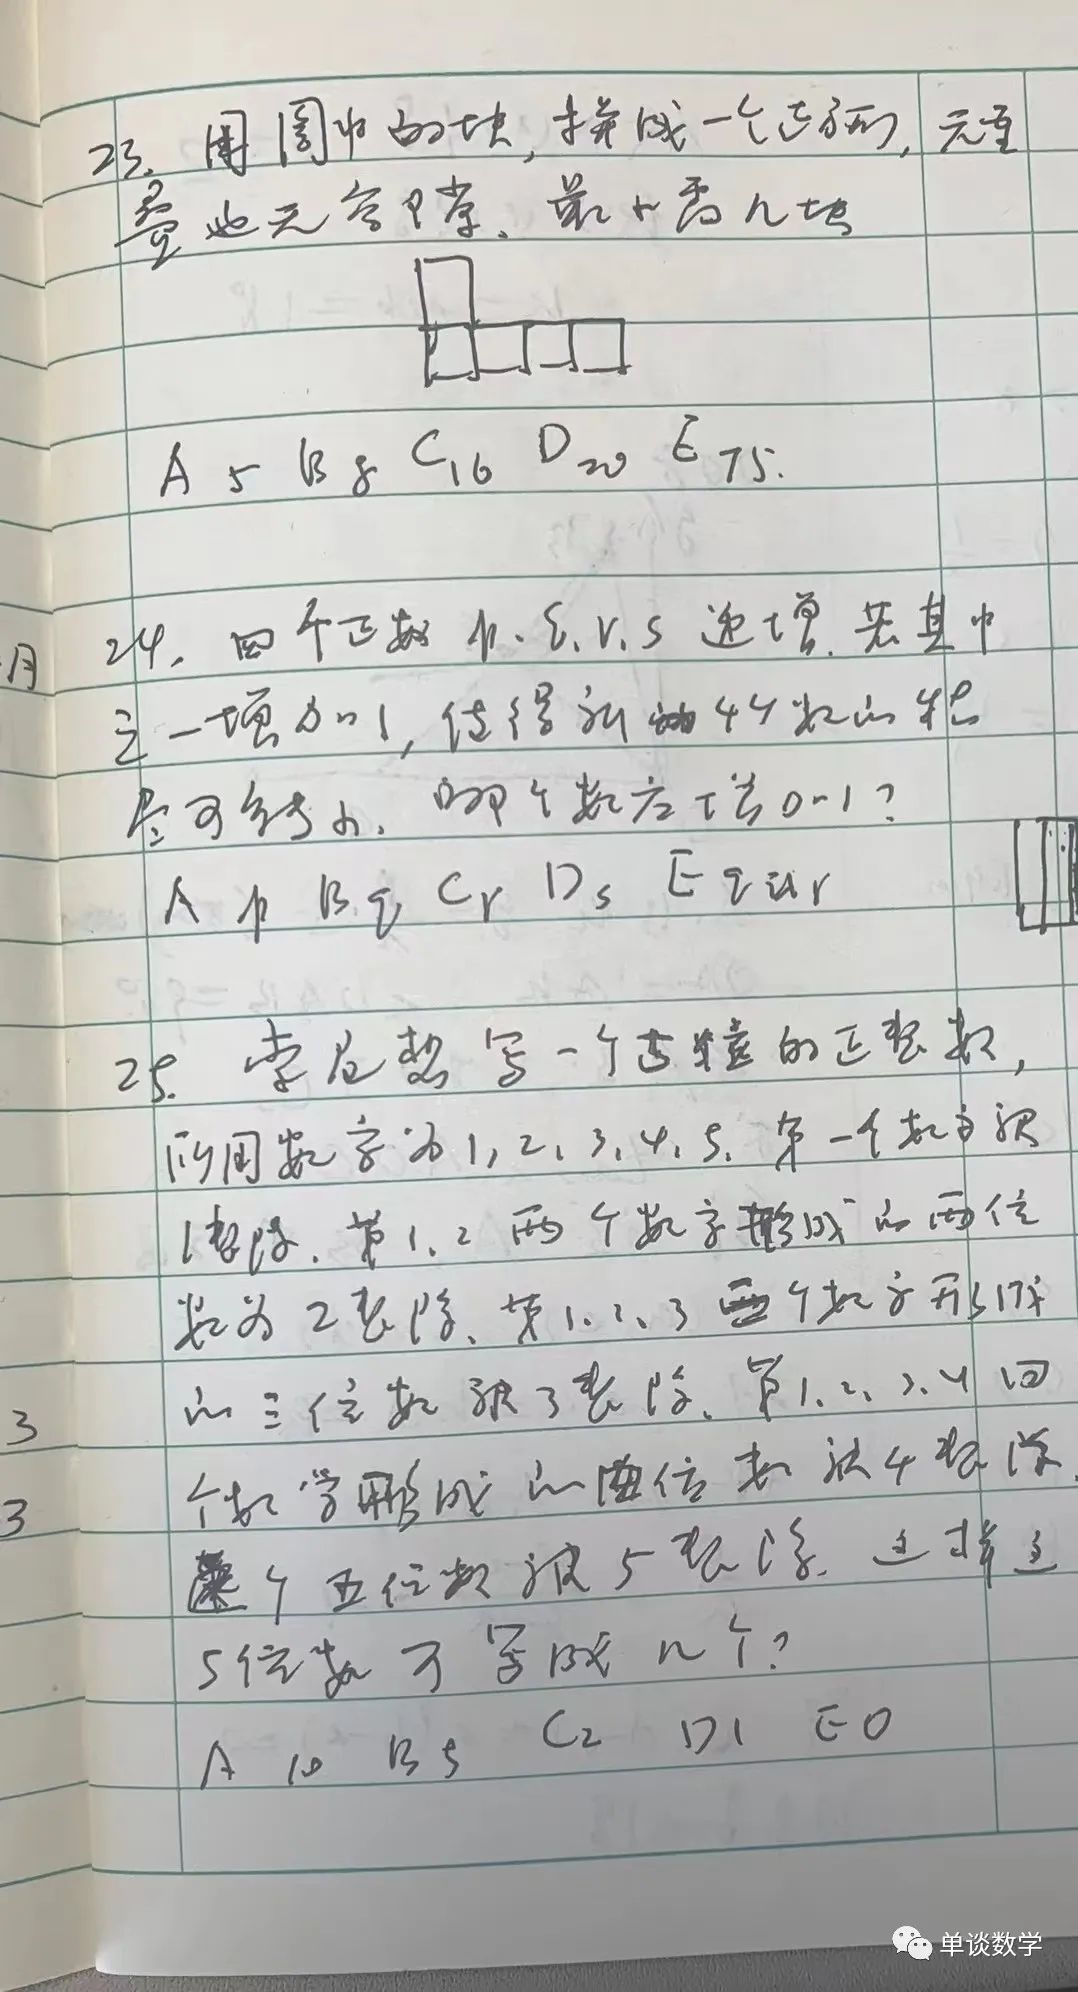 23. 用图中的块, 拼成一个正方形, 无重
叠也无空隙. 最少需几块
A 5 B 8 C 16 D 20 E 75.
24. 四个正数 p. q. r. s 递增. 若其中
之一增加1, 使得新的4个数的积
尽可能小. 哪个数应增加1?
A p B q C r D s E q或r
月
25. 李及想写一个古怪的正整数,
所用数字为1, 2, 3, 4, 5. 第一个数字被
1整除. 第1. 2 两个数字形成的两位
数为 2 整除. 第1. 2. 3 三个数字形成
的三位数被3整除. 第1. 2. 3. 4 四
个数字形成的四位数被4整除.
个五位数被5整除. 这样之
5位数可写成几个?
A 10 B 5 C 2 D 1 E 0
3
3
单谈数学